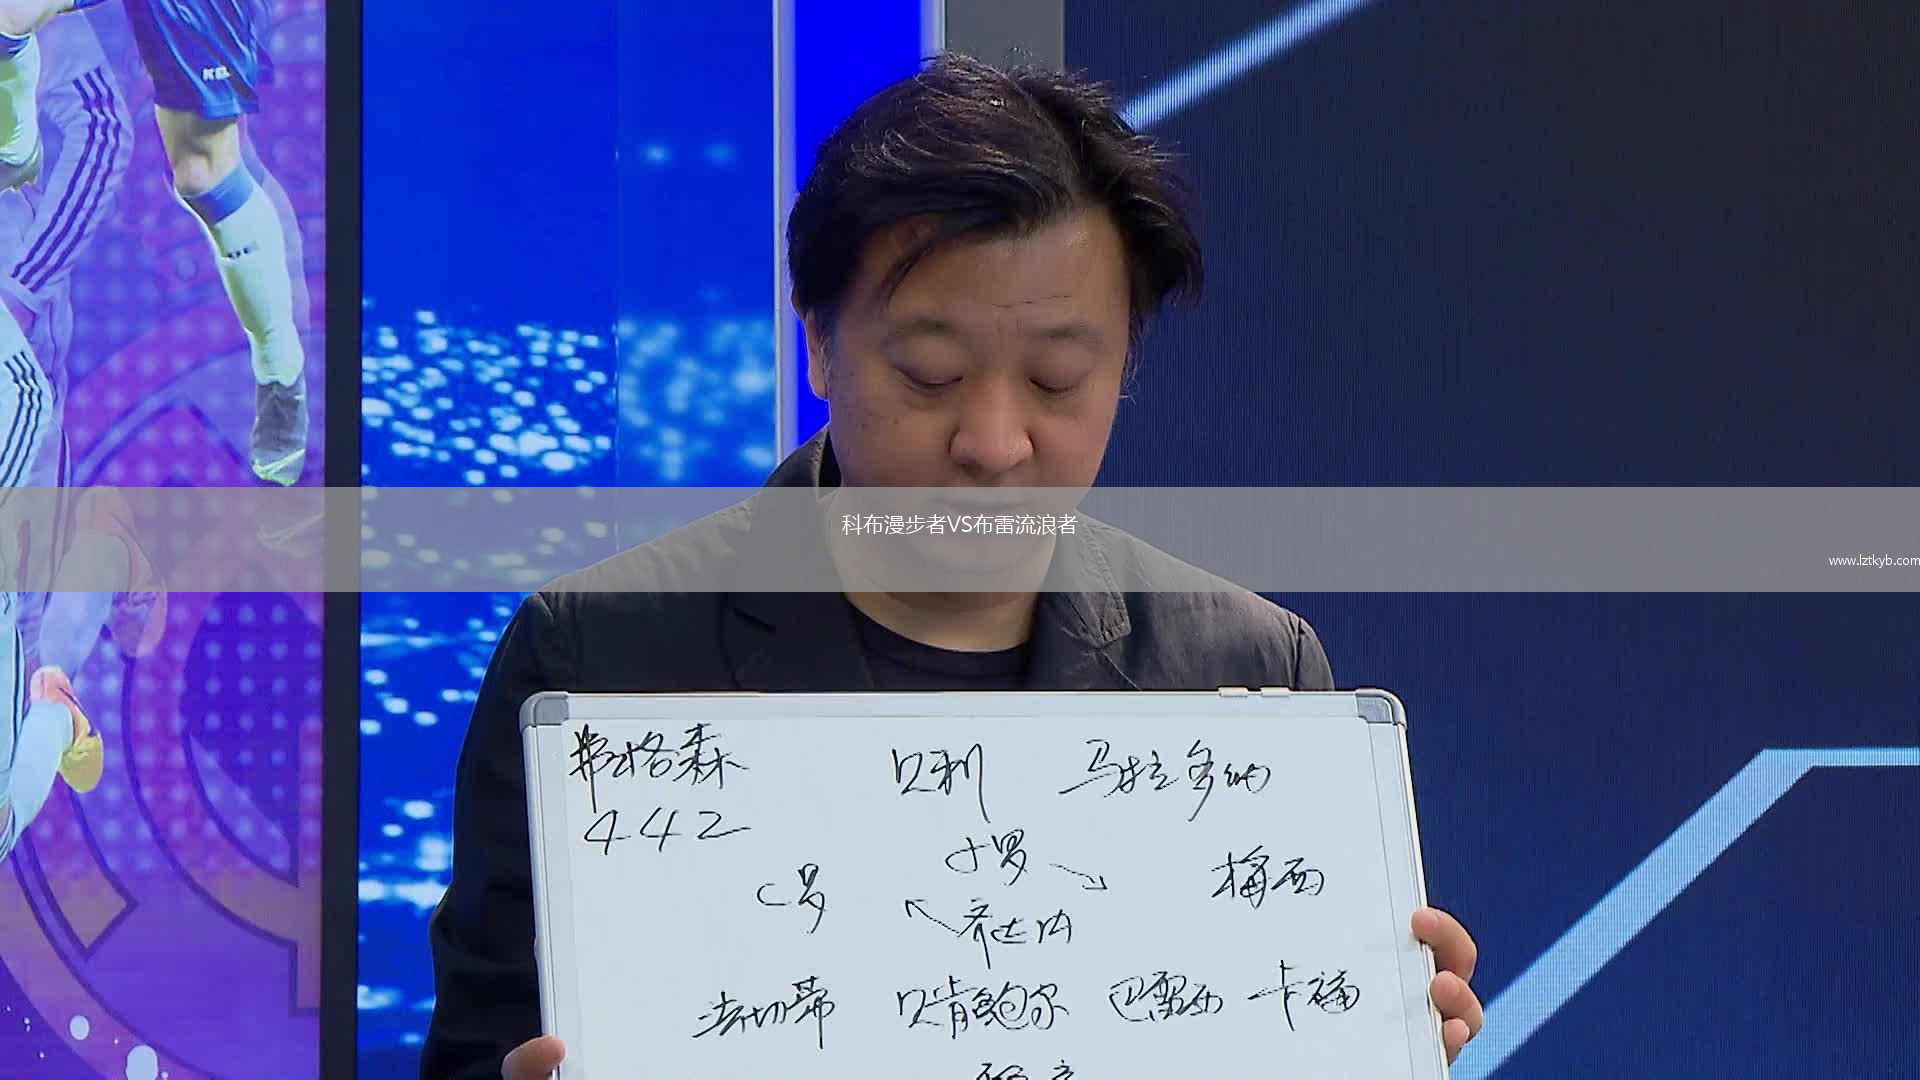 科布漫步者VS布雷流浪者
www.lztkyb.com
弗格森
442
贝利 马拉多纳
小罗
C罗 梅西
齐达内
法切蒂 贝肯鲍尔 巴雷西 卡福